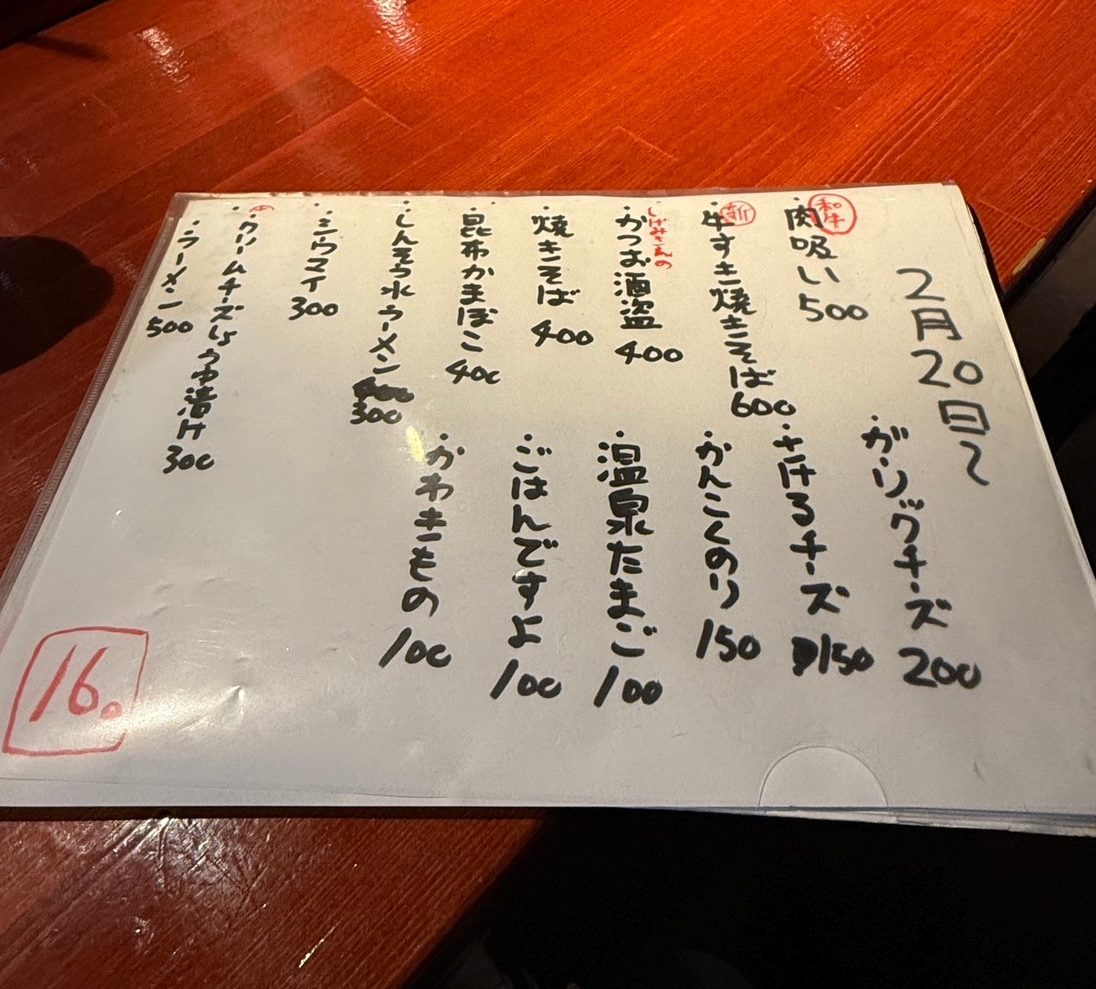 2月20日〜
和牛
・肉吸い 500
新
・牛すき焼きそば 600
しげみさんの
・かつお酒盗 400
・焼きそば 400
・昆布かまぼこ 400
・しんそう氷ラーメン 300
・シウマイ 300
・クリームチーズしょうゆ漬け 300
・ラーメン 500
・ガーリックチーズ 200
・さけるチーズ 150
・かんこくのり 150
・温泉たまご 100
・ごはんですよ 100
・かわきもの 100
16